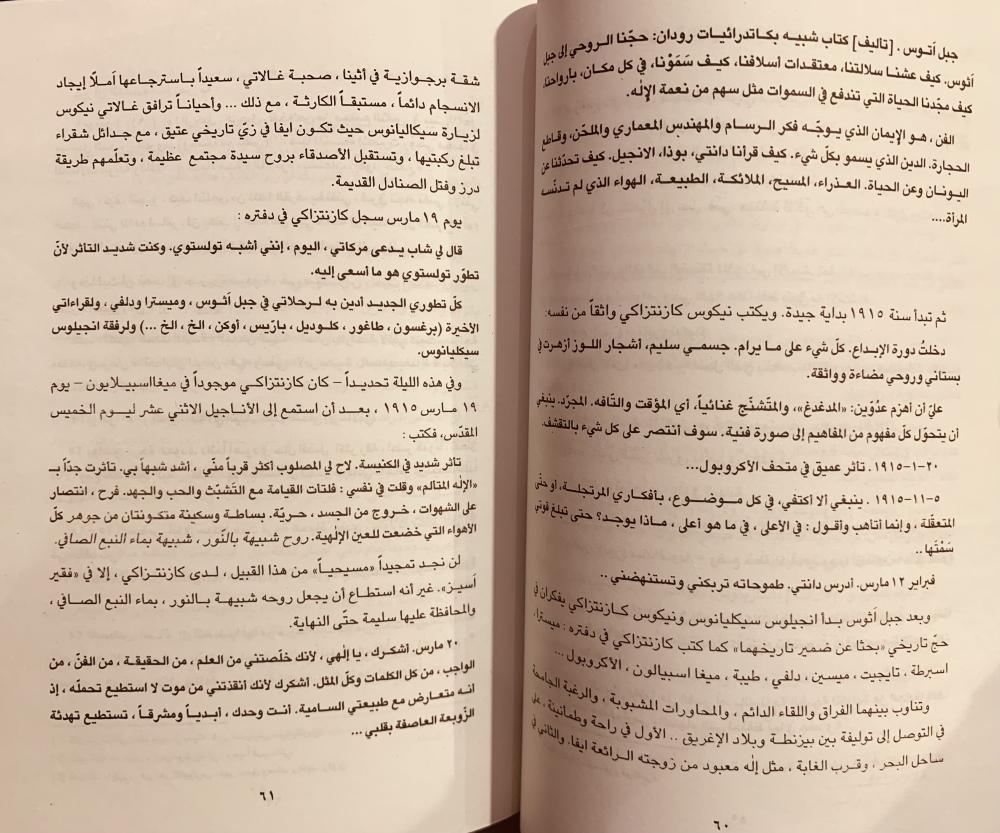 جبل آتوس . [تأليف] كتاب شبيه بكاتدرائيات رودان: حجّنا الروحي إلى جبل
آثوس. كيف عشنا سلالتنا، معتقدات أسلافنا، كيف سَمَوْنا، في كل مكان، بأرواحنا،
كيف مجّدنا الحياة التي تندفع في السموات مثل سهم من نعمة الإله.
الفن ، هو الإيمان الذي يوجّه فكر الرسام والمهندس المعماري والملحّن، وقاطع
الحجارة. الدين الذي يسمو بكلّ شيء. كيف قرأنا دانتي، بوذا، الانجيل. كيف تحدّثنا عن
اليونان وعن الحياة. العذراء، المسيح، الملائكة، الطبيعة، الهواء الذي لم تدنّسه
المرأة....
ثم تبدأ سنة ١٩١٥ بداية جيدة. ويكتب نيكوس كازنتزاكي واثقاً من نفسه:
دخلتُ دورة الإبداع. كلّ شيء على ما يرام. جسمي سليم، أشجار اللوز أزهرت في
بستاني وروحي مضاءة وواثقة.
عليّ أن أهزم عدُوّين: «المدغدغ»، والمتشنّج غنائياً، أي المؤقت والتّافه. المجرّد. ينبغي
أن يتحوّل كلّ مفهوم من المفاهيم إلى صورة فنية. سوف أنتصر على كل شيء بالتقشف.
٢٠-١-١٩١٥. تأثر عميق في متحف الأكروبول...
٥-١١-١٩١٥ . ينبغي ألا اكتفي، في كل موضوع، بأفكاري المرتجلة، أو حتى
المتعقّلة ، وإنما أتاهب وأقول : في الأعلى ، في ما هو أعلى ، ماذا يوجد؟ حتى تبلغ قوتي
سَمْتَها ..
فبراير ١٢ مارس. أدرس دانتي. طموحاته تربكني وتستنهضني ..
وبعد جبل آثوس بدأ انجيلوس سيكليانوس ونيكوس كازنتزاكي يفكران في
حجّ تاريخي «بحثا عن ضمير تاريخهما» كما كتب كازنتزاكي في دفتره : ميسترا،
اسبرطة ، تايجيت ، ميسين ، دلفي ، طيبة ، ميغا اسبيالون ، الأكروبول ...
وتناوب بينهما الفراق واللقاء الدائم ، والمحاورات المشبوبة ، والرغبة الجامحة
في التوصل إلى توليفة بين بيزنطة وبلاد الإغريق .. الأول في راحة وطمانينة ، على
ساحل البحر ، وقرب الغابة ، مثل إله معبود من زوجته الرائعة ايفا. والثاني في
٦٠
شقة برجوازية في أثينا ، صحبة غالاتي ، سعيداً باسترجاعها آملاً إيجاد
الانسجام دائماً ، مستبقاً الكارثة ، مع ذلك ... وأحياناً ترافق غالاتي نيكوس
لزيارة سيكاليانوس حيث تكون ايفا في زيّ تاريخي عتيق ، مع جدائل شقراء
تبلغ ركبتيها ، وتستقبل الأصدقاء بروح سيدة مجتمع عظيمة ، وتعلّمهم طريقة
درز وفتل الصنادل القديمة.
يوم ١٩ مارس سجل كازنتزاكي في دفتره :
قال لي شاب يدعى مركاتي ، اليوم ، إنني أشبه تولستوي. وكنت شديد التأثر لأنّ
تطوّر تولستوي هو ما أسعى إليه.
كلّ تطوري الجديد أدين به لرحلاتي في جبل آثوس ، وميسترا ودلفي ، ولقراءاتي
الأخيرة (برغسون ، طاغور ، كلوديل ، بارّيس ، أوكن ، الخ ، الخ ...) ولرفقة انجيلوس
سيكليانوس.
وفي هذه الليلة تحديداً – كان كازنتزاكي موجوداً في ميغااسبيلايون – يوم
١٩ مارس ١٩١٥ ، بعد أن استمع إلى الأناجيل الاثني عشر ليوم الخميس
المقدّس، فكتب :
تأثر شديد في الكنيسة. لاح لي المصلوب أكثر قرباً منّي ، أشد شبهاً بي. تأثرت جدّاً بـ
«الإله المتألم» وقلت في نفسي : فلتأت القيامة مع التّشبّث والحب والجهد. فرح ، انتصار
على الشهوات ، خروج من الجسد ، حريّة. بساطة وسكينة متكونتان من جوهر كلّ
الأهواء التي خضعت للعين الإلهية. روح شبيهة بالنّور ، شبيهة بماء النبع الصافي.
لن نجد تمجيداً «مسيحياً» من هذا القبيل ، لدى كازنتزاكي ، إلا في «فقير
أسيز». غير أنه استطاع أن يجعل روحه شبيهة ـ بالنور ، بماء النبع الصافي ،
والمحافظة عليها سليمة حتّى النهاية.
٢٠ مارس. أشكرك ، يا إلهي ، لأنك خلّصتني من العلم ، من الحقيقة ، من الفنّ ، من
الواجب ، من كل الكلمات وكلّ المثل. أشكرك لأنك أنقذتني من موت لا استطيع تحملّه ، إذ
انه متعارض مع طبيعتي السامية. أنت وحدك ، أبدياً ومشرقاً ، تستطيع تهدئة
الزّوبعة العاصفة بقلبي ...
٦١